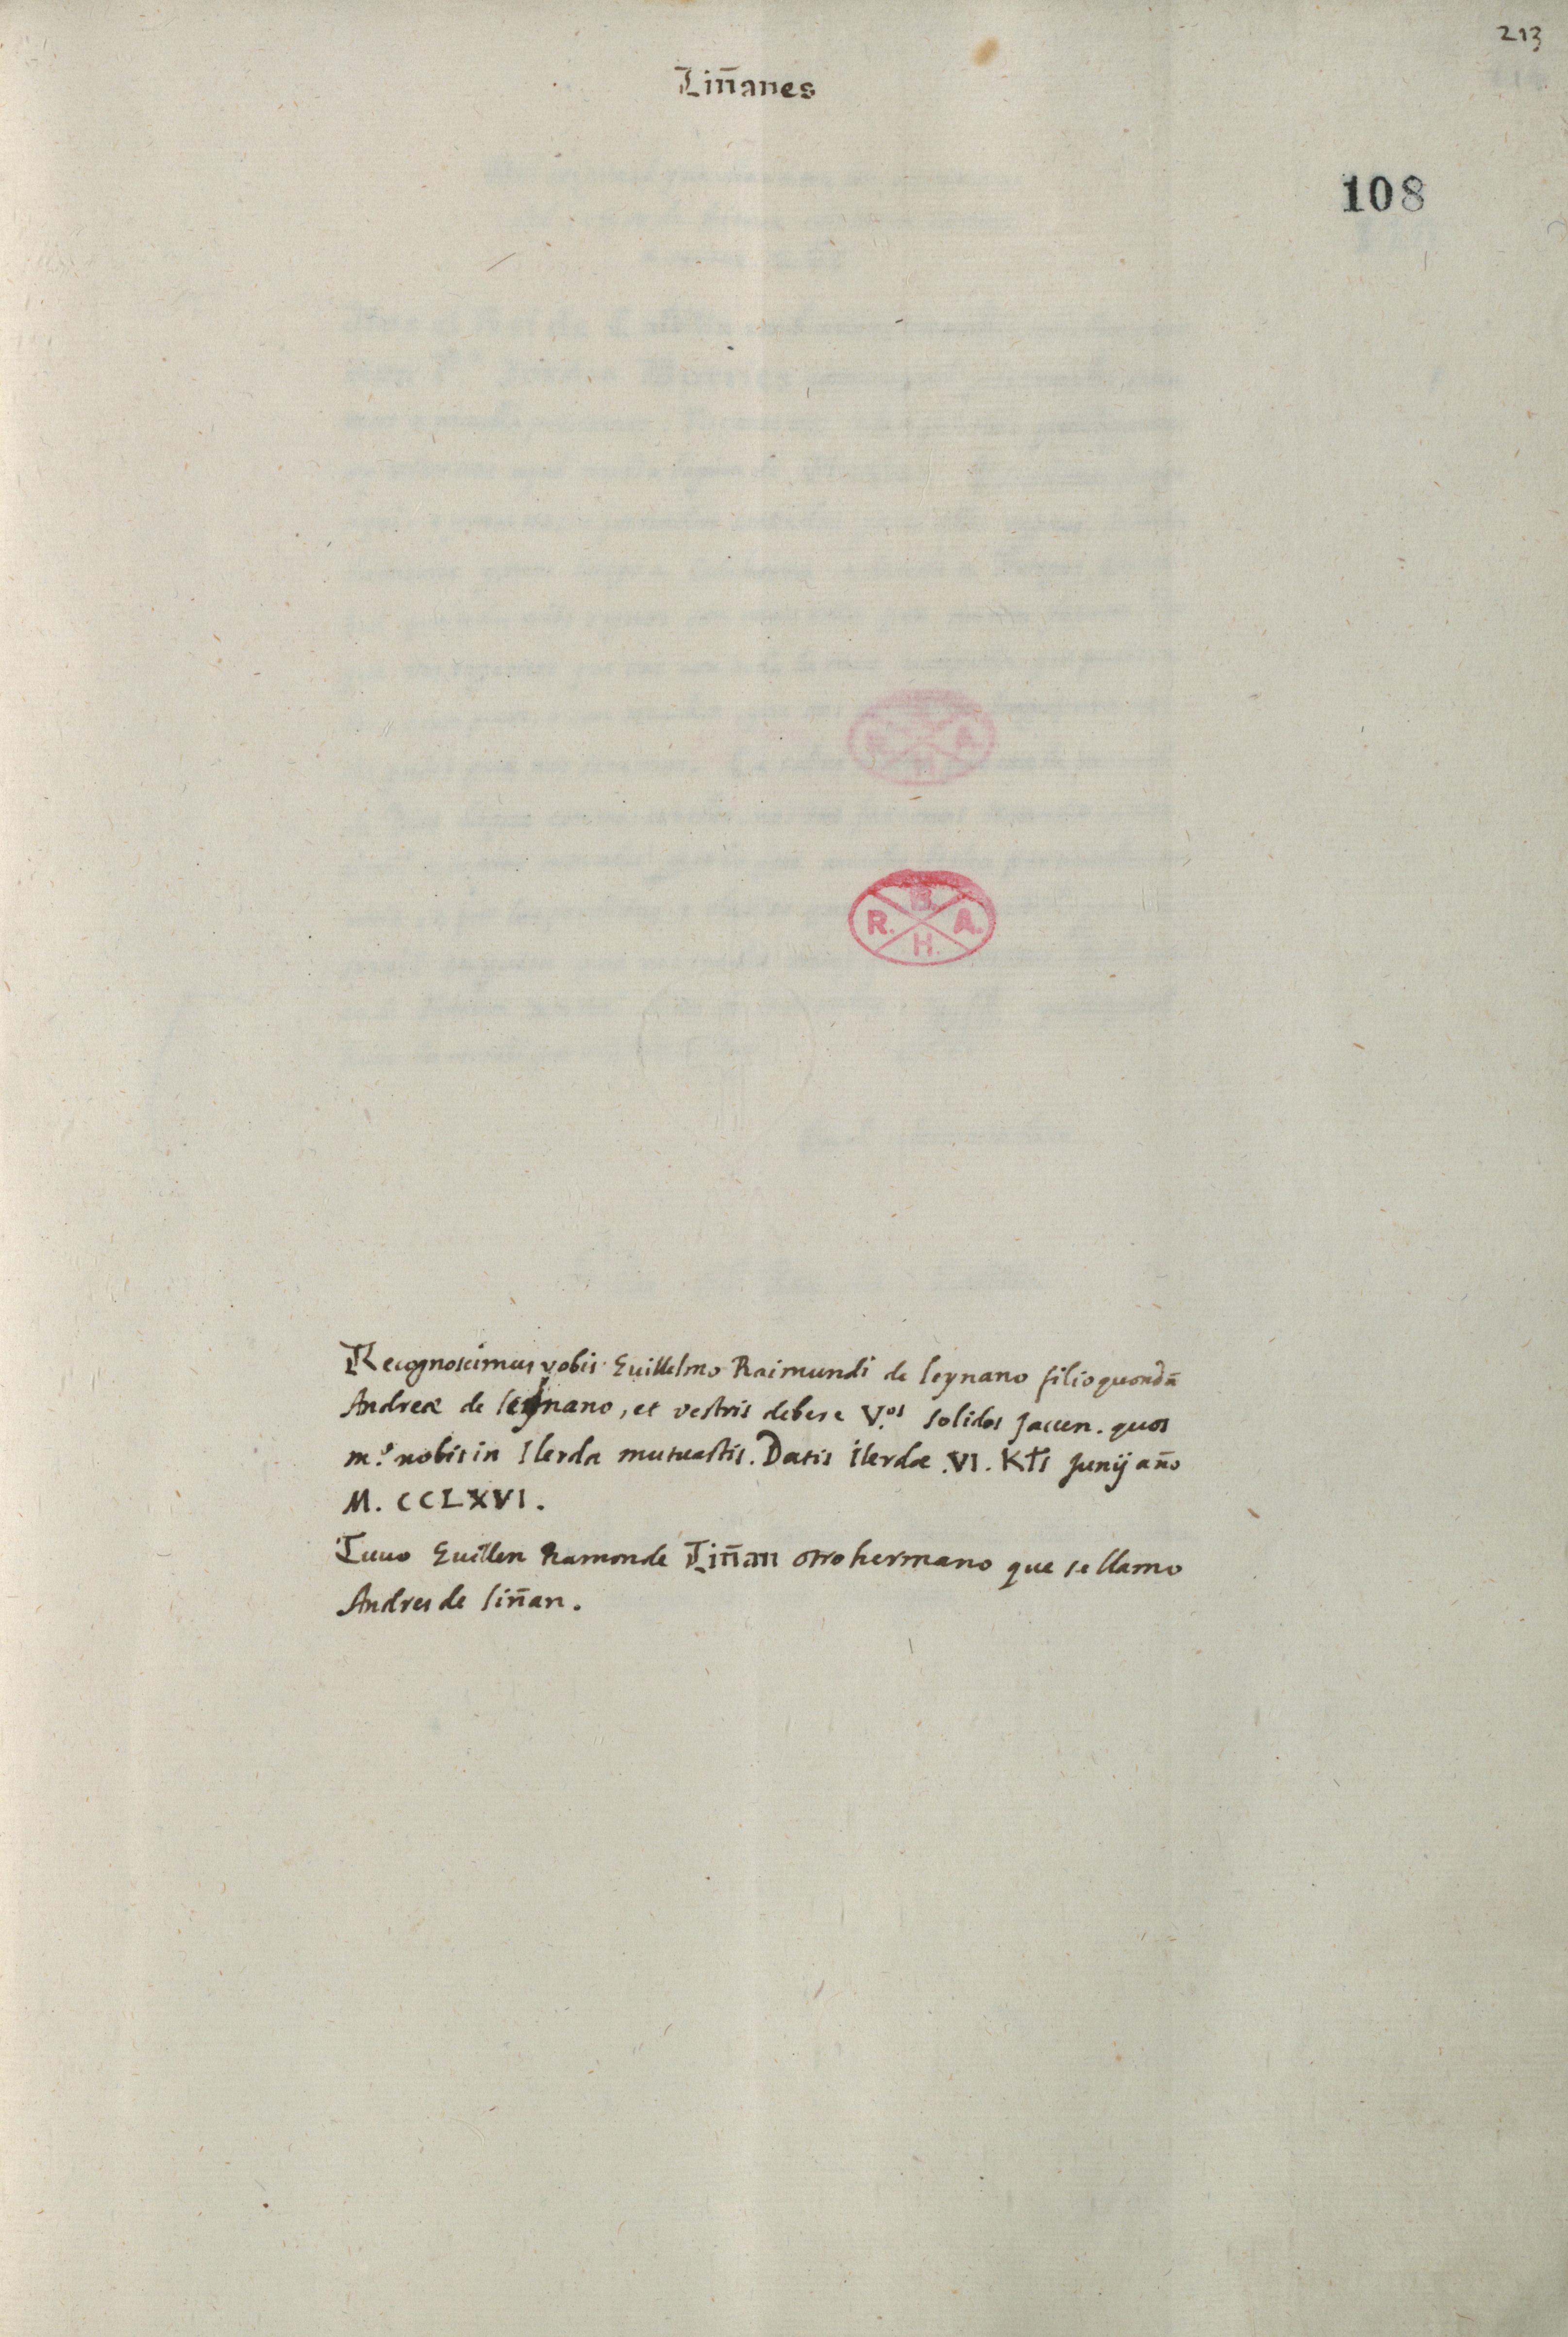 213
Liñanes
108
B.
R. A.
H.
Recognoscimus vobis Guillelmo Raimundi de leynano filio quondã
Andreæ de leynano, et vestris debere V.os solidos Jaccen. quos
m.o nobis in Ilerda mutuastis. Datis ilerdæ .VI. Kłs Junij año
M. CCLXVI.
Tuuo Guillen Ramon de Liñan otro hermano que se llamo
Andres de liñan.